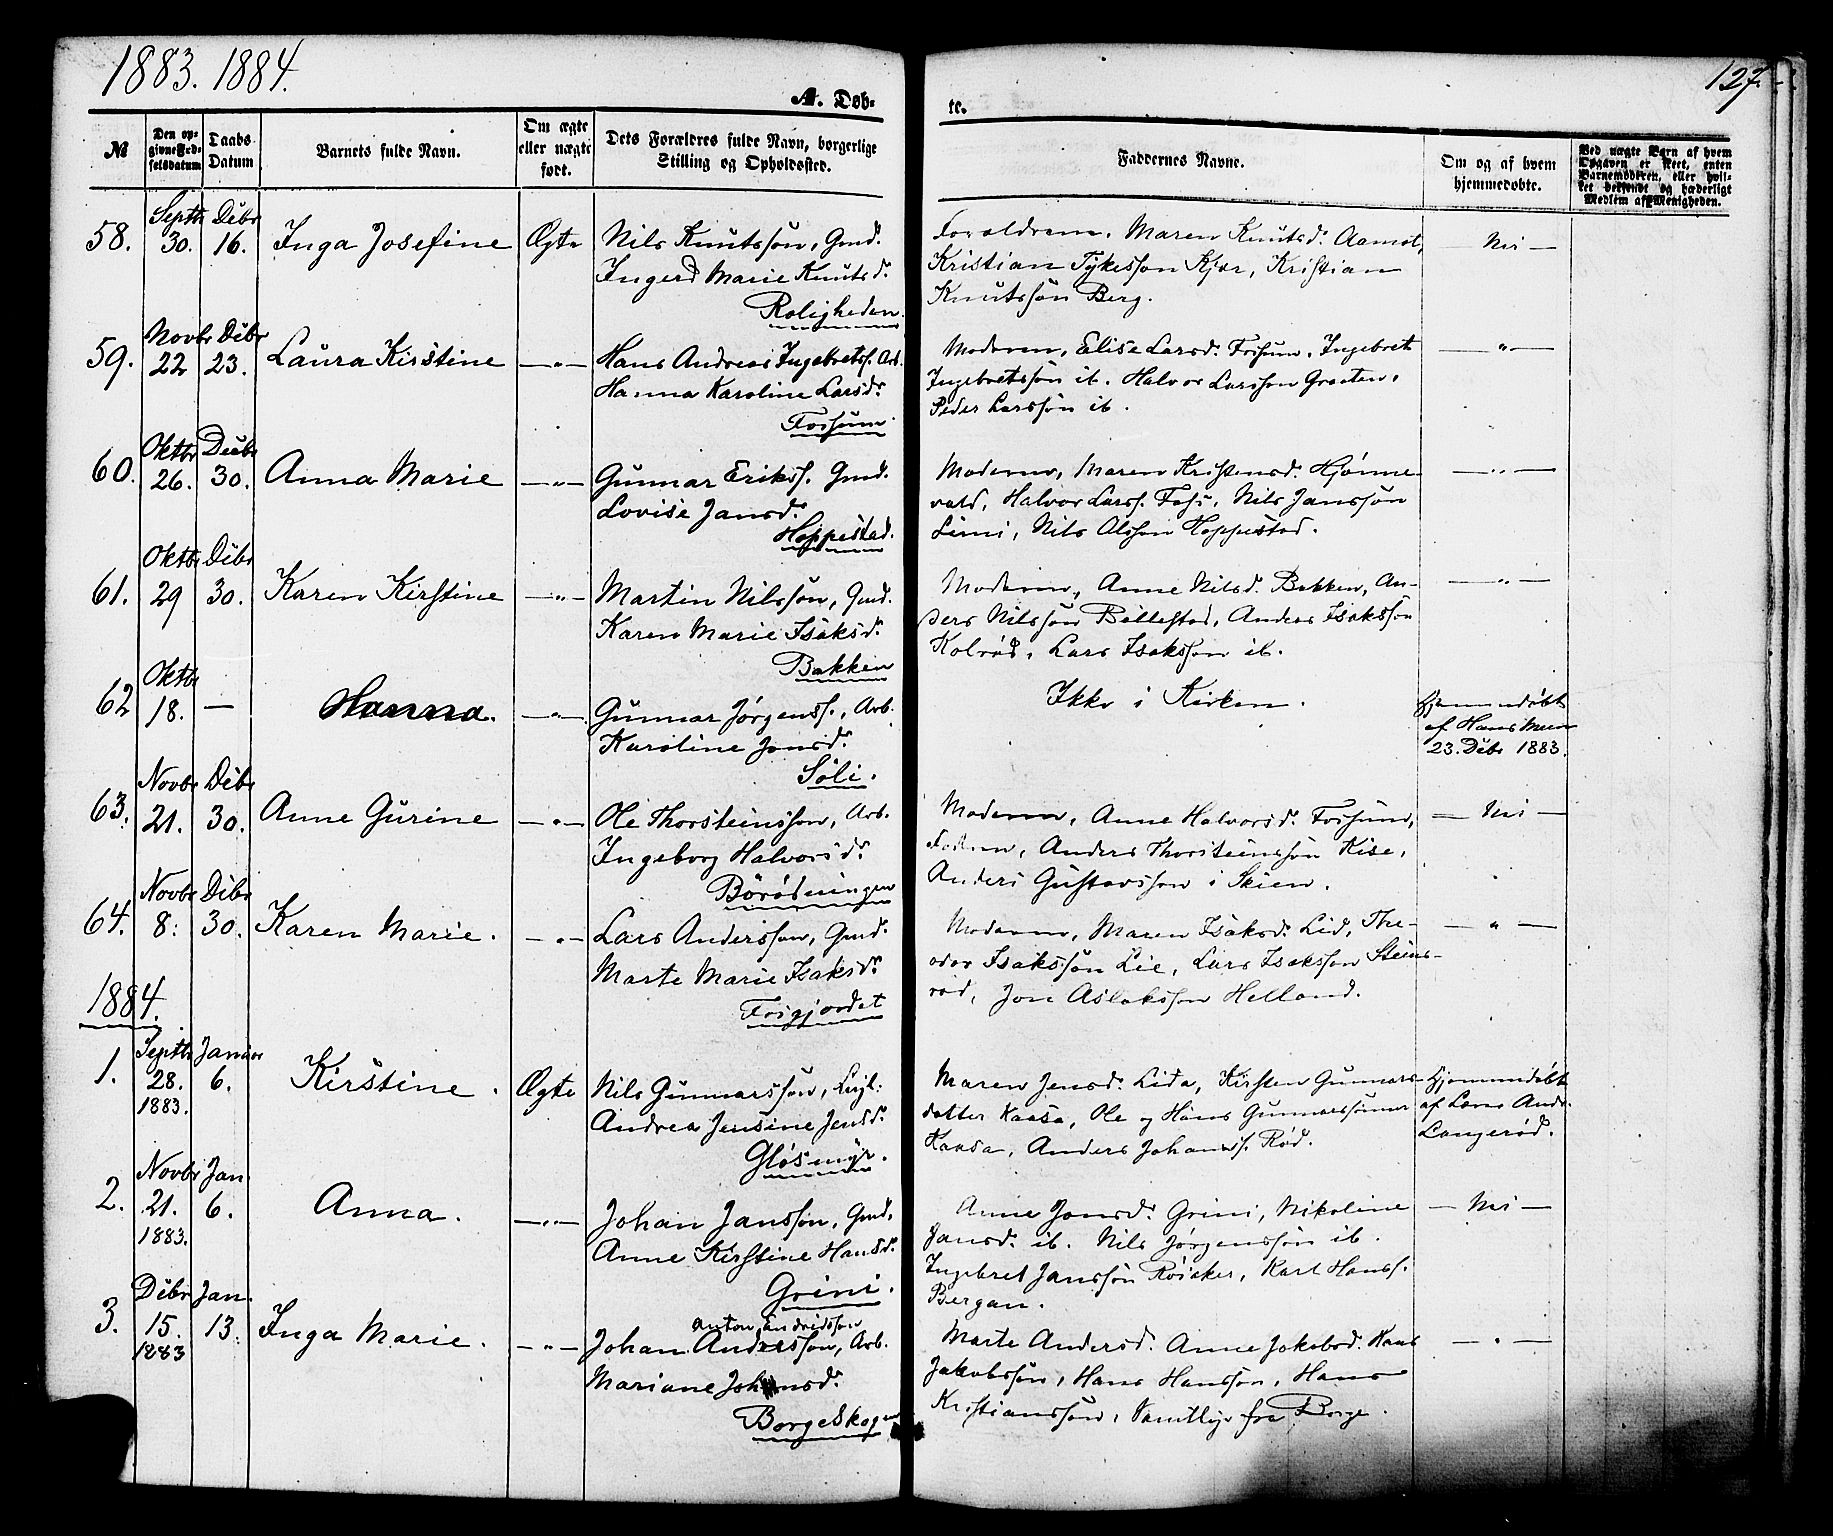 1883. 1884.
A. Døb-
te.
127.
№
Den op-
givne Fød-
selsdatum
Daabs
Datum
Barnets fulde Navn.
Om ægte
eller uægte
født.
Dets Forældres fulde Navn, borgerlige
Stilling og Opholdssted.
Faddernes Navne.
Om og af hvem
hjemmedøbte.
Ved uægte Barn af hvem
Opgaven er skeet, enten
Barnemoderen, eller hvil-
ket boefende og hæderligt
Medlem af Menigheden.
58.
Septbr
30.
Debr
16.
Inga Josefine
Ægte
Nils Knutssøn, Gmd.
Ingerd Marie Knutsd.
Roligheden.
Forældrene, Maren Knutsd. Aamot,
Kristian Tykessøn Kjær, Kristian
Knutssøn Berg.
— Nei —
59.
Novbr
22
Debr
23.
Laura Kirstine
—„—
Hans Andreas Ingebretss. Arb.
Hanna Karoline Larsd.
Fossum
Moderen, Elise Larsd. Fossum, Ingebret
Ingebretssøn ib. Halvor Larssøn Graaten,
Peder Larssøn ib.
—„—
60.
Oktbr
26.
Debr
30.
Anna Marie
—„—
Gunnar Erikss. Gmd.
Lovise Jansd.
Hoppestad.
Moderen, Maren Kristensd. Hjønne-
vald, Halvor Larss. Foss, Nils Janssøn
Limi, Nils Olssøn Hoppestad.
—„—
61.
Oktbr
29
Debr
30.
Karen Kirstine
—„—
Martin Nilssøn, Gmd.
Karen Marie Isaksd.
Bakken
Moderen, Anne Nilsd. Bakken, An-
ders Nilssøn Bøllestad, Anders Isakssøn
Kolrød, Lars Isakssøn ib.
—„—
62
Oktbr
18.
—
Hanna.
—„—
Gunnar Jørgenss., Arb.
Karoline Jonsd.
Søli.
Ikke i Kirken.
Hjemmedøbt
af Hans Muen
23. Debr 1883.
63.
Novbr
21.
Debr
30.
Anne Gurine
—„—
Ole Thorsteinssøn, Arb.
Ingeborg Halvorsd.
Børødningen
Moderen, Anne Halvorsd. Fossum,
Faderen, Anders Thorsteinssøn Kise,
Anders Gustavssøn i Skien.
— Nei —
64.
Novbr
8.
Debr
30.
Karen Marie.
—„—
Lars Anderssøn, Gmd.
Marte Marie Isaksd.
Frigjordet
Moderen, Maren Isaksd. Lid, The-
odor Isakssøn Lie, Lars Isakssøn Steins-
rød, Jon Aslakssøn Helland.
—„—
1884.
1.
Septbr
28.
1883.
Januar
6.
Kirstine.
Ægte
Nils Gunnarssøn, Leijl.
Andrea Jensine Jensd.
Gløsmyr.
Maren Jensd. Lida, Kirsten Gunnars-
datter Kaasa, Ole og Hans Gunnarssønner
Kaasa, Anders Johanss. Rød.
Hjemmedøbt
af Lars Andr.
Langerød.
2.
Novbr
21.
1883.
Jan.
6.
Anna.
—„—
Johan Janssøn, Gmd.
Anne Kirstine Hansd.
Grini.
Anne Jonsd. Grini, Nikoline
Jansd. ib. Nils Jørgenssøn ib.
Ingebret Janssøn Røiaker, Karl Hanss.
Bergan.
— Nei —
3.
Debr
15.
1883
Jan.
13.
Inga Marie.
—„—
Anton Endridssøn
Johan Anderssøn, Arb.
Mariane Johansd.
Borgeskogen
Marte Andersd. Anne Jakobsd. Hans
Jakobssøn, Hans Hanssøn, Hans
Kristianssøn, Samtlige fra Borge.
—„—